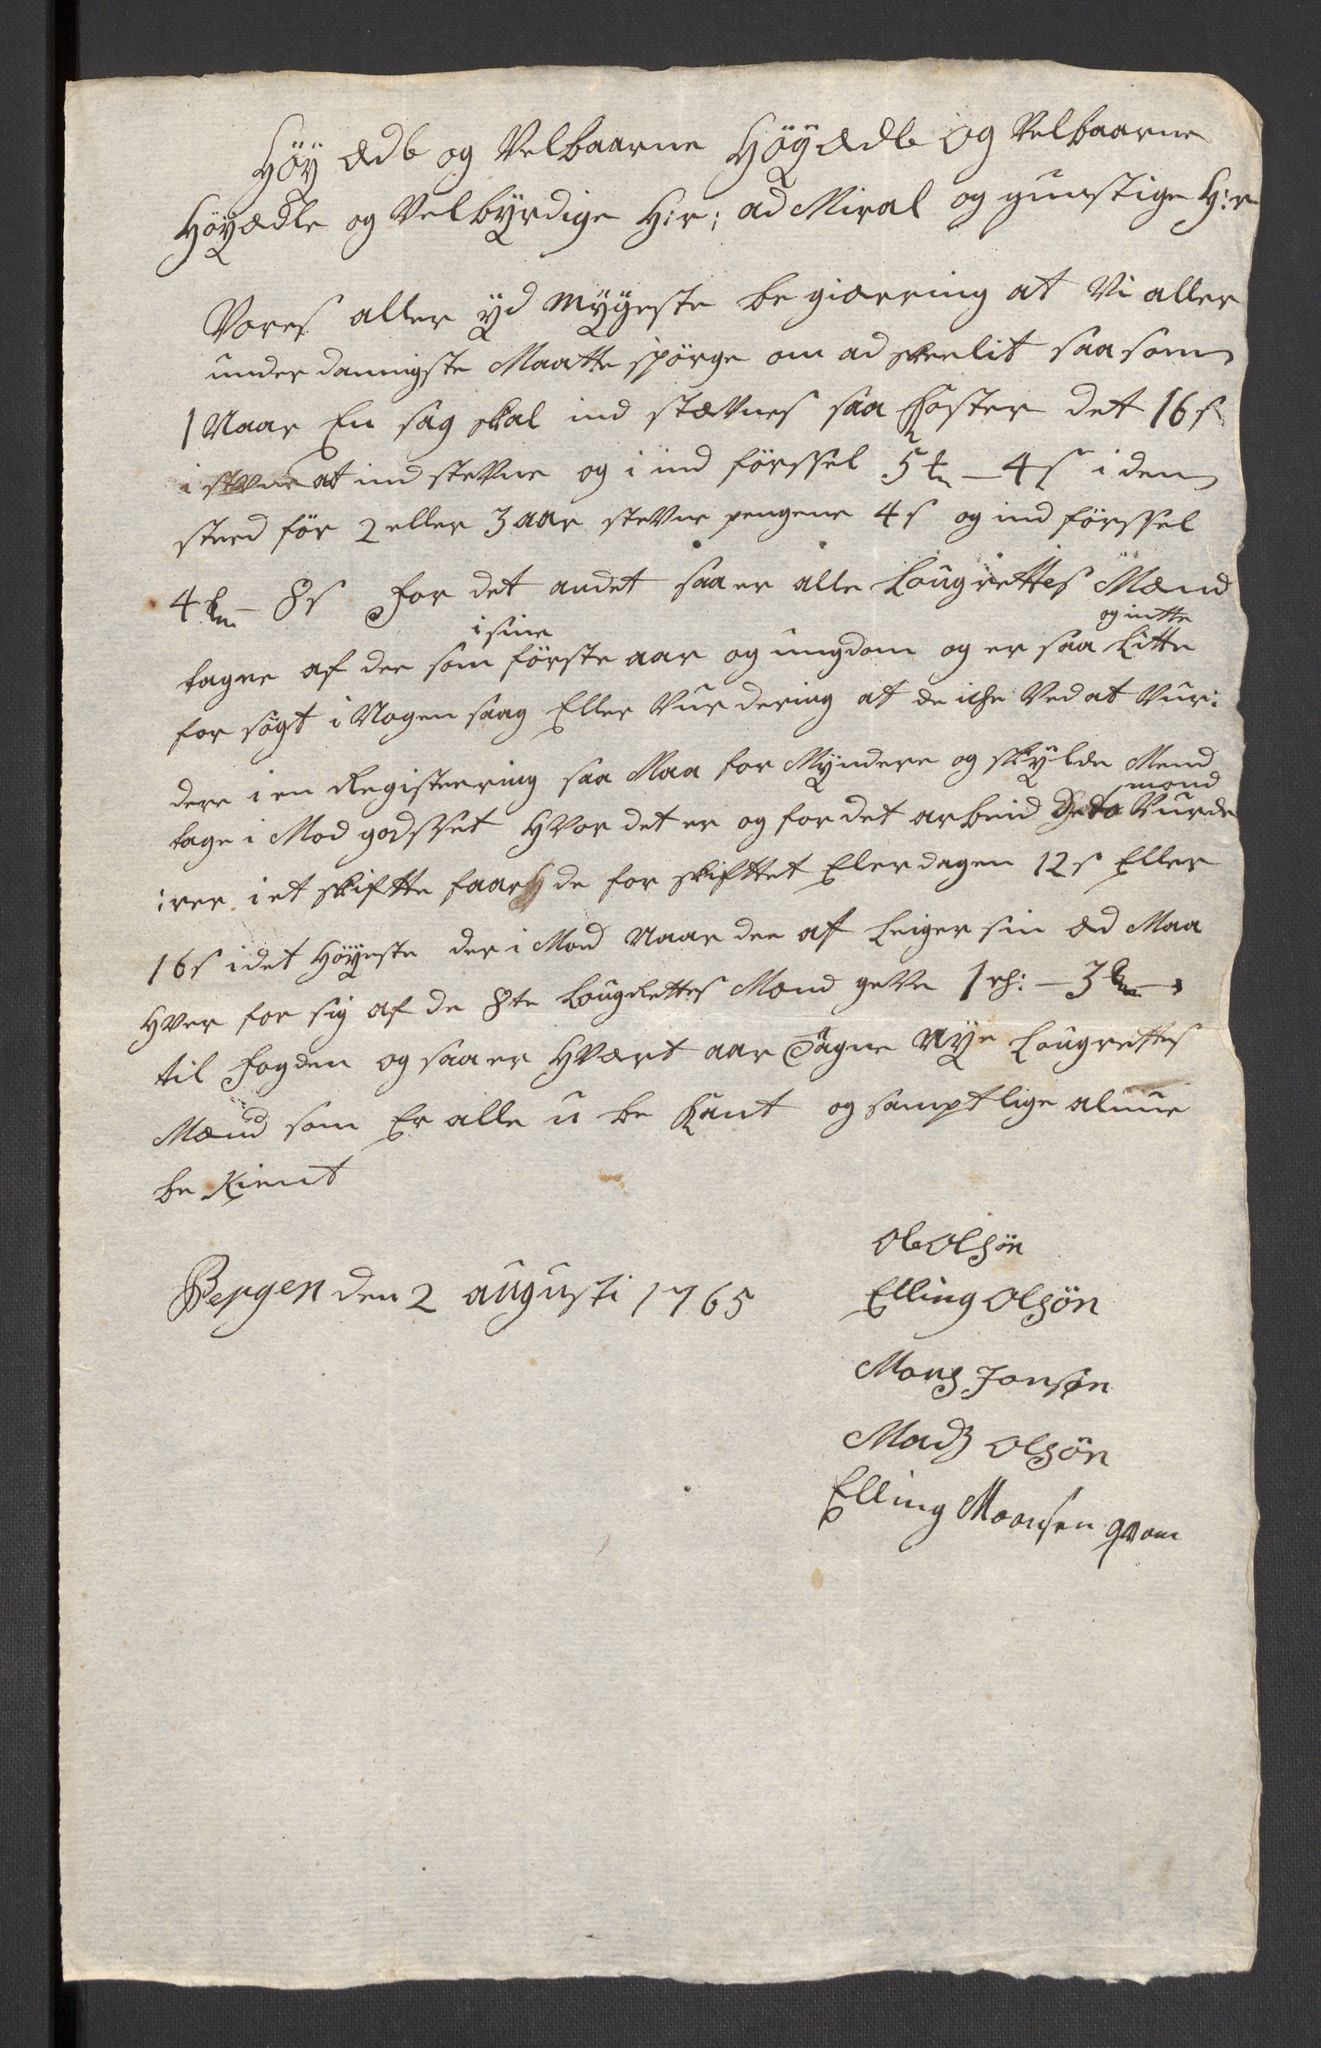 Höÿ ædle og Velbaarne Höÿædle og Velbaarne
Höÿædle og Velbÿrdige H:r: ad Miral og gunstige H:r
Vores aller ÿd Mÿgeste be giæring at Vi aller
under dannigste Maatte spörge om ad skeelit saa som
1 Naar En sag skal ind stævnes saa koster det 16 s
i stvne at ind stevne og i ind förssel 5 – 4 s i den
sted för 2 eller 3 aar stevne pengene 4 s og ind förssel
4 – 8 s for det andet saa er alle Lougrettes Mænd
i sine og intte
tagne af dee som förste aar og ungdom og er saa Litte
for sögt i Nogen saag Eller Vurdering at de iche Ved at Vur:
dere i en Registeering saa Maa for Mÿndere og skÿlde Mend
mond
tage i Mod godsset Hvor det er og for det arbeid Vurde
:ree i et skiftte faar de for skifttet Eler dagen 12 s Eller
16 s i det Höÿeste der i Mod Naar dee af Leiger sin æd Maa
Hver for sig af de 8te Lougrettes Mænd geve 1 rh: – 3
til fogden og saa er Hvært aar Tagne Nÿe Lougrettes
Mænd som Er alle u be kant og samptlige almue
be Kient
Bergen den 2 augusti 1765
Ole Olsön
Elling Olsön
Mons Jonsøn
Mads Olsön
Elling Monsen qvam